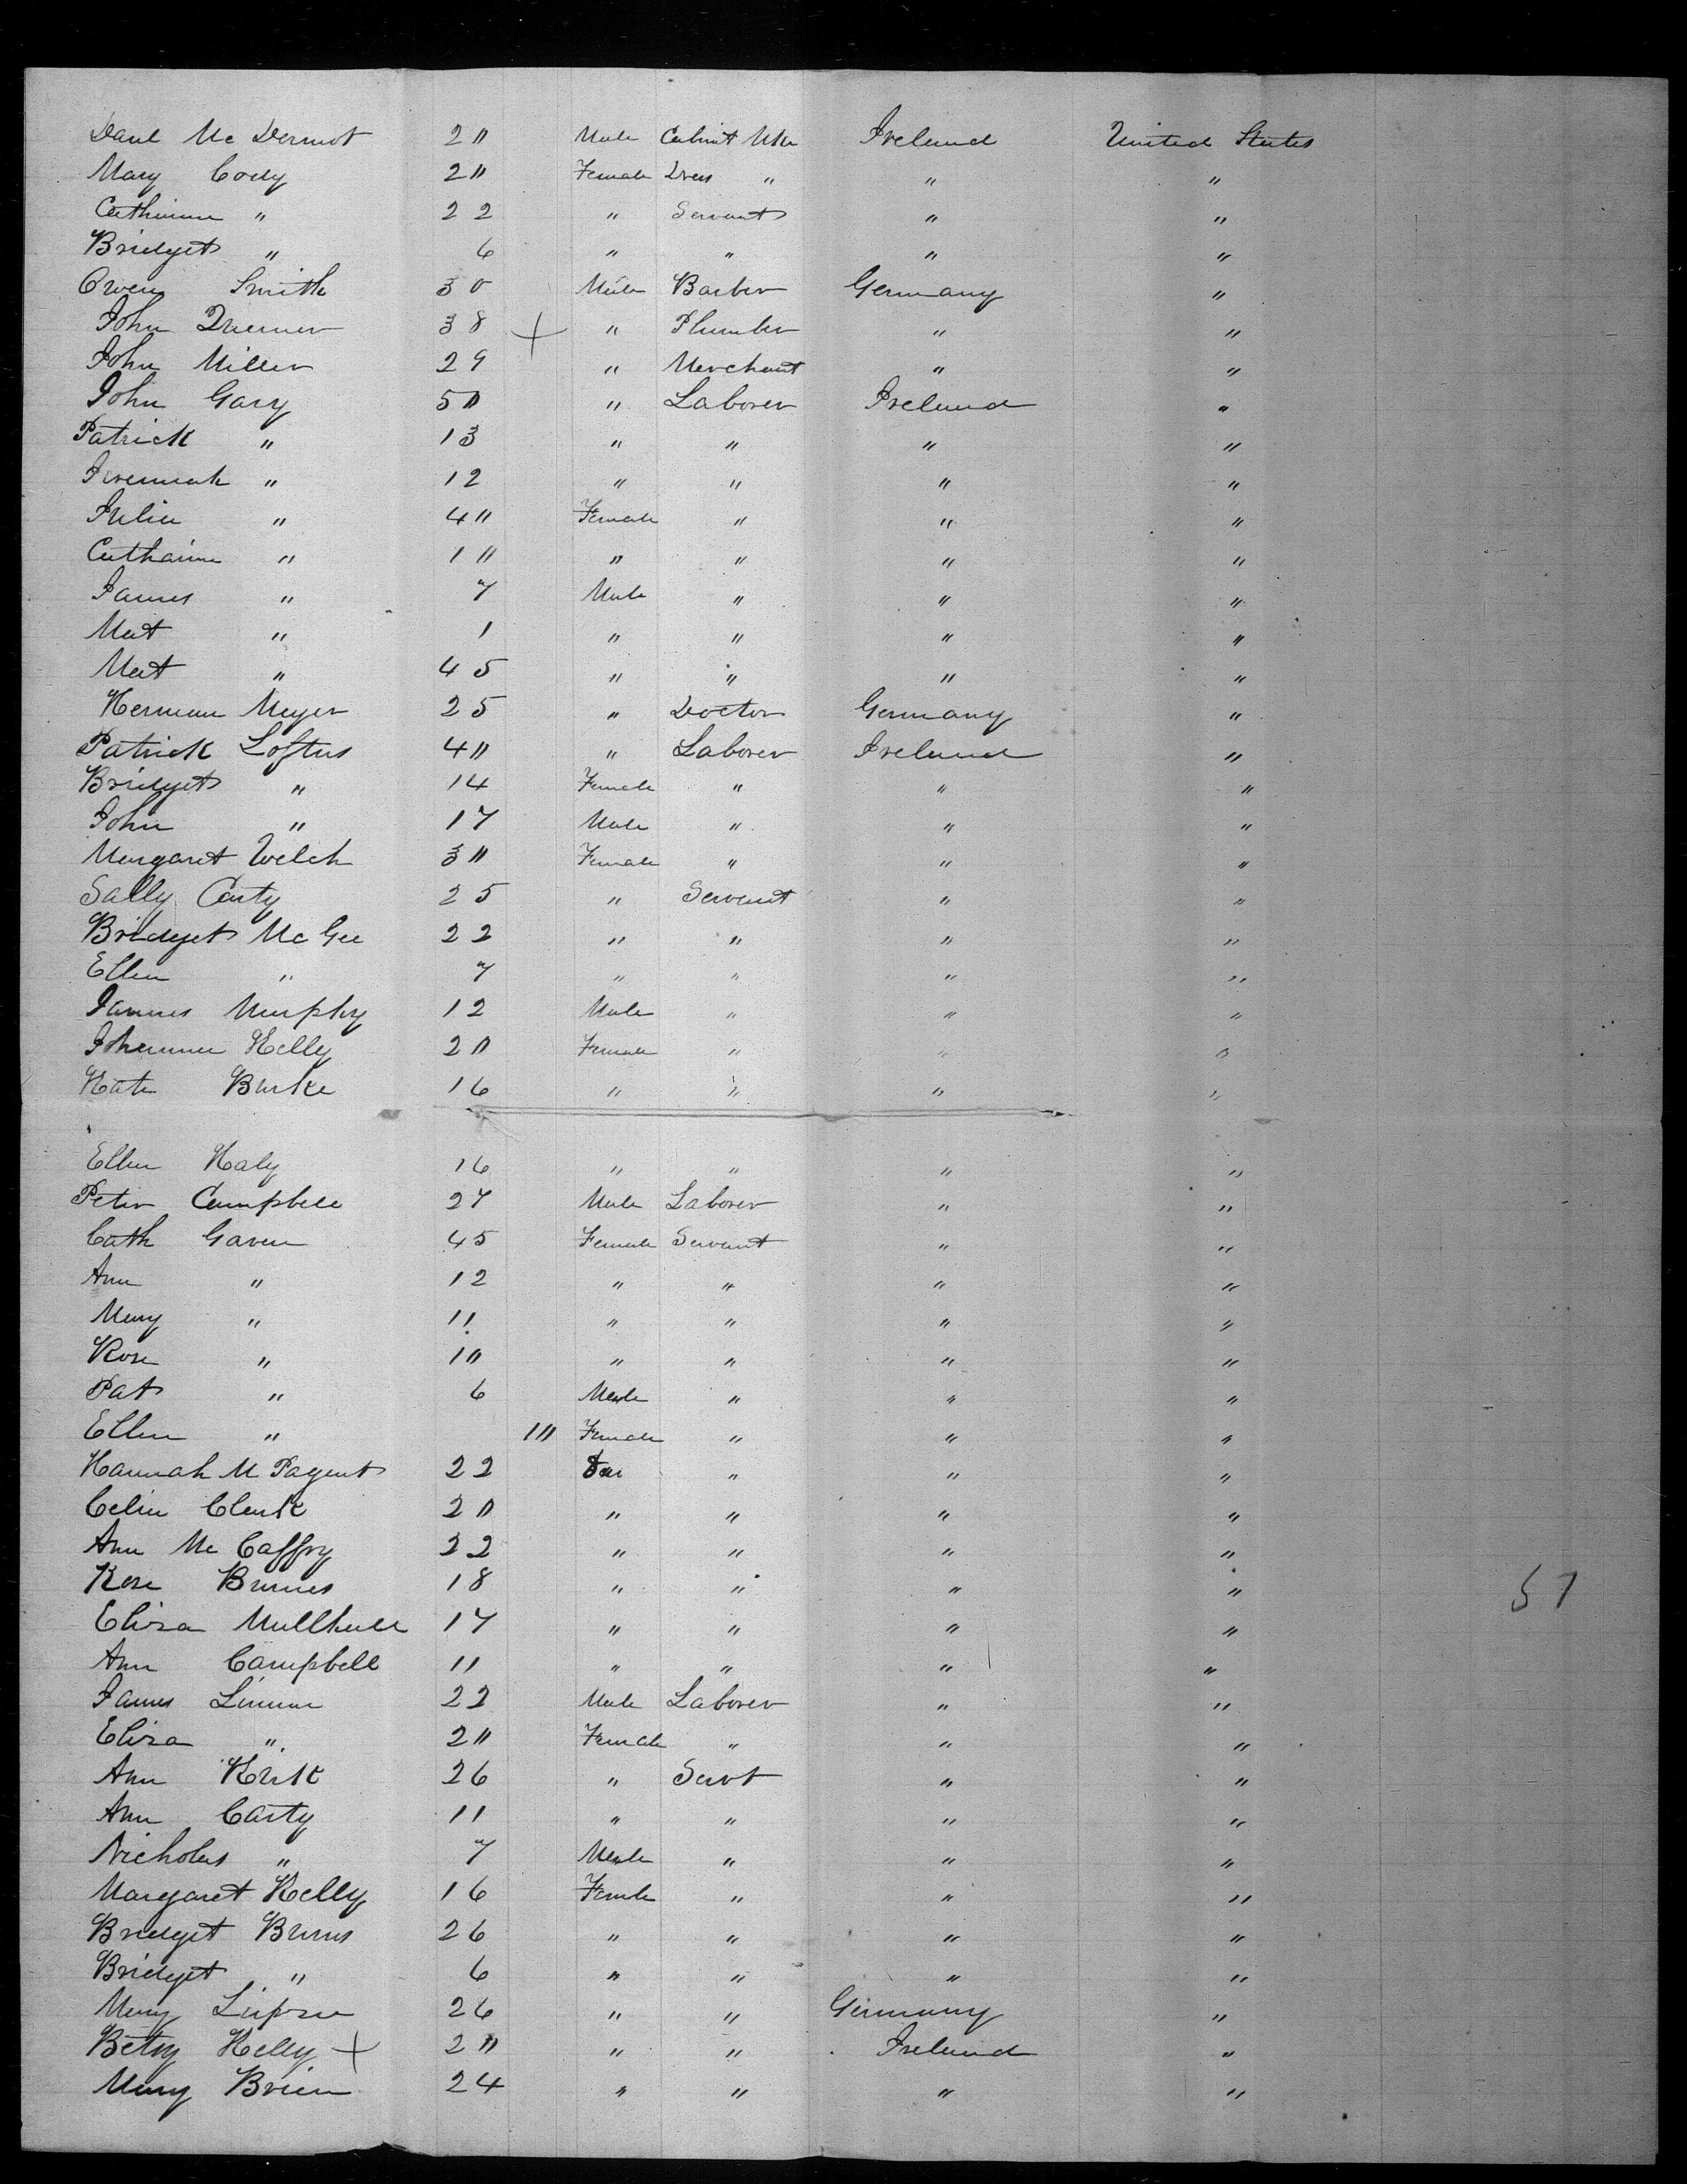 Danl Mc Dermot 20 Male Cabinet Mkr Ireland United States
Mary Cody 20 Female Dress " " "
Catharine " 22 " Servant " "
Bridget " 6 " " " "
Owen Smith 30 Male Barber Germany "
John 38 + " Plumber " "
John Miller 29 " Merchant " "
John Gary 50 " Laborer Ireland "
Patrick " 13 " " " "
Jeremiah " 12 " " " "
Julia " 40 Female " " "
Catharine " 10 " " " "
James " 7 Male " " "
Mat " 1 " " " "
Mat " 45 " " " "
Herman Meyer 25 " Doctor Germany "
Patrick Loftus 40 " Laborer Ireland "
Bridget " 14 Female " " "
John " 17 Male " " "
Margaret Welch 30 Female " " "
Sally Carty 25 " Servant " "
Bridget Mc Gee 22 " " " "
Ellen " 7 " " " "
James Murphy 12 Male " " "
Johanna Kelly 20 Female " " "
Kate Burke 16 " " " "
Ellen Haly 16 " " " "
Peter Campbell 27 Male Laborer " "
Cath Gaven 45 Female Servant " "
Ann " 12 " " " "
Mary " 11 " " " "
Rose " 10 " " " "
Pat " 6 Male " " "
Ellen " 10 Female " " "
Hannah M 22 " " "
Celia Clark 20 " " " "
Ann Mc Caffry 22 " " " "
Rose Burnes 18 " " " "
Eliza Mullhall 17 " " " "
Ann Campbell 11 " " " "
James 22 Male Laborer " "
Eliza " 20 Female " " "
Ann Kirk 26 " Servt " "
Ann Carty 11 " " " "
Nicholas " 7 Male " " "
Margaret Kelly 16 Female " " "
Bridget Burns 26 " " " "
Bridget " 6 " " " "
Mary 26 " " Germany "
Betsy Kelly + 20 " " Ireland "
Mary Brien 24 " " " "
51